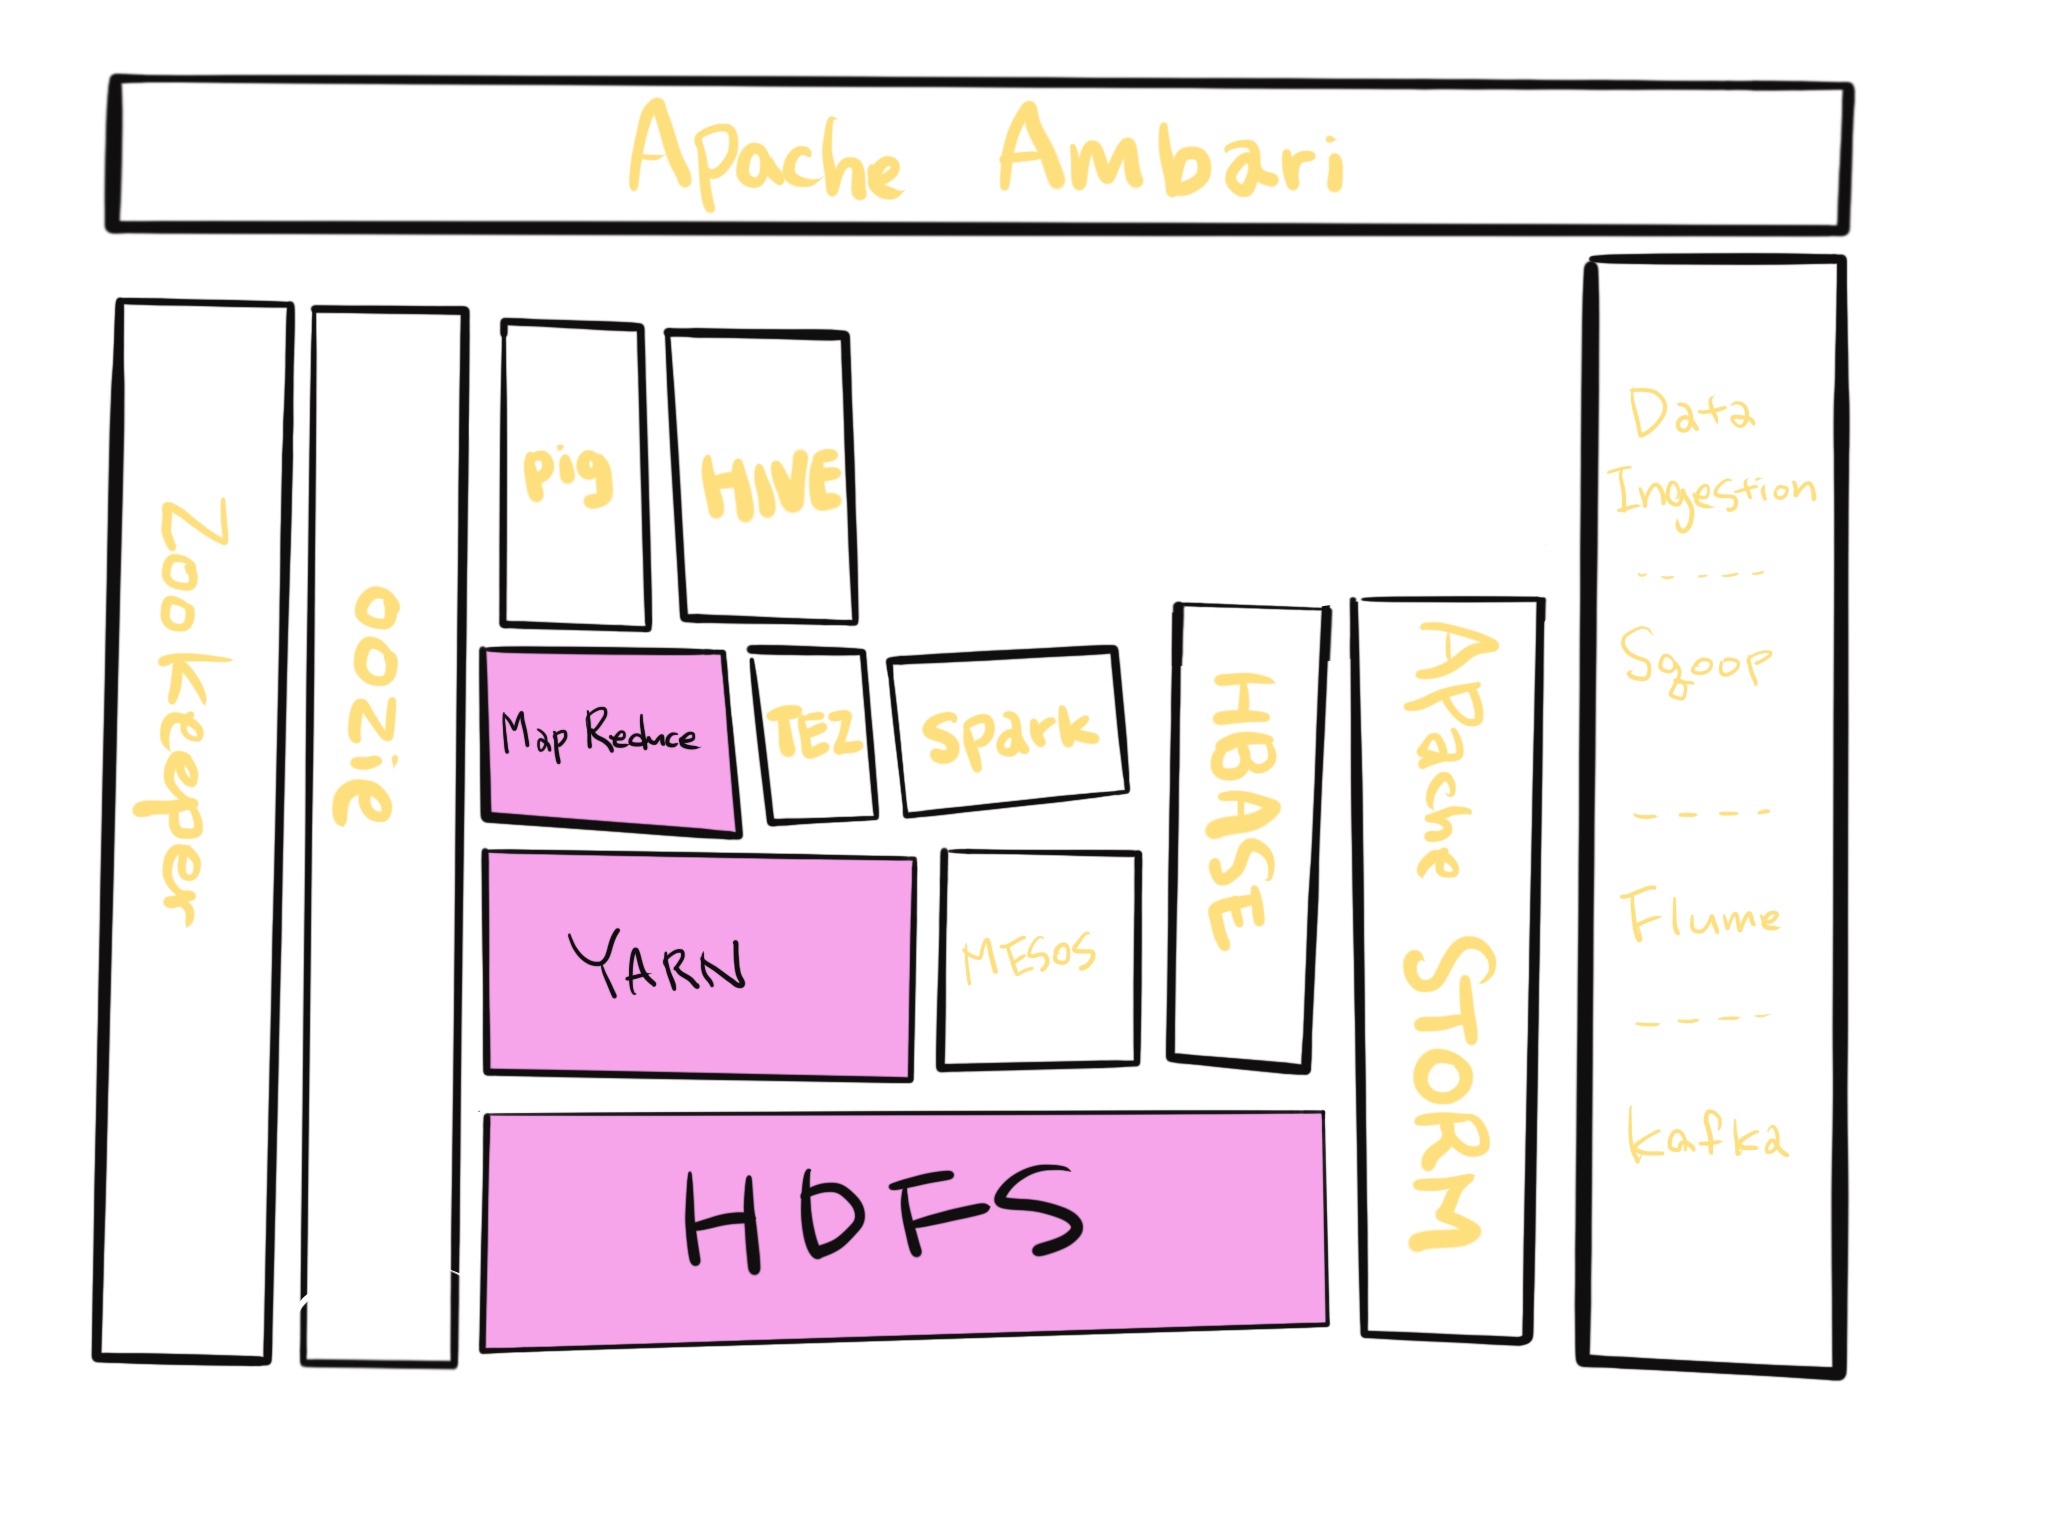 Apache Ambari
Zookeeper
oozie
Pig
HIVE
Map Reduce
TEZ
Spark
YARN
MESOS
HDFS
HBASE
Apache STORM
Data
Ingestion
Sqoop
Flume
Kafka